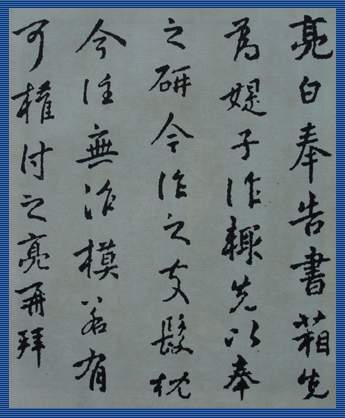 亮白奉告書葙先
為媞子作輙先以奉
之研今作之支髮枕
今往無模若有
可權付之亮再拜